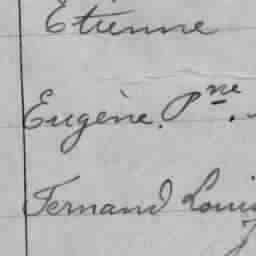 Etienne
Eugène. Pne.
Fernand Louis